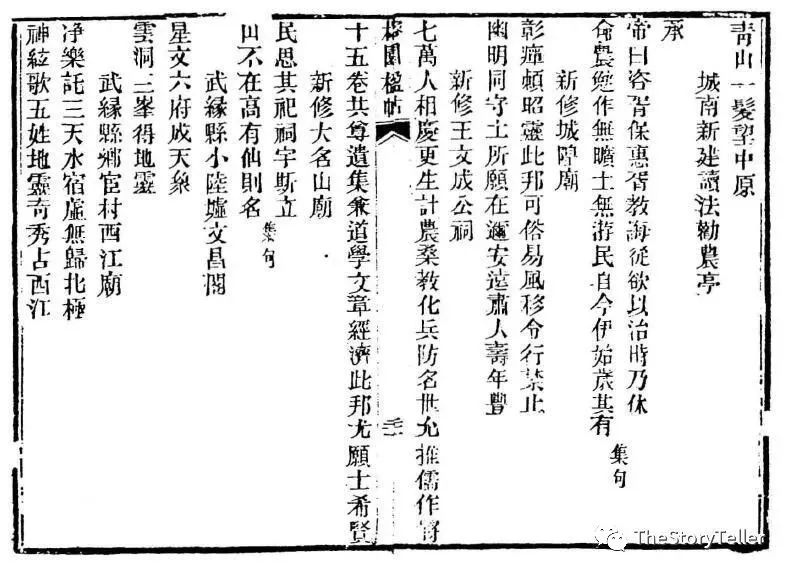 青山一髮望中原
城南新建讀法勸農亭
承
帝曰咨胥保惠胥教誨從欲以治時乃休
集句
命農勉作無曠土無游民自今伊始歲其有
新修城隍廟
彰癉賴昭靈此邦可俗易風移令行禁止
幽明同守土所願在邇安遠肅人壽年豐
新修王文成公祠
七萬人相慶更生計農桑教化兵防名世允推儒作將
榕園楹帖
十五卷共尊遺集兼道學文章經濟此邦尤願士希賢
新修大名山廟
民思其祀祠宇斯立
集句
山不在高有仙則名
武緣縣小陸墟文昌閣
星文六府成天象
雲洞三峯得地靈
武緣縣鄉宦村西江廟
净樂託三天水宿虛無歸北極
神絃歌五姓地靈奇秀占西江
TheStoryTeller